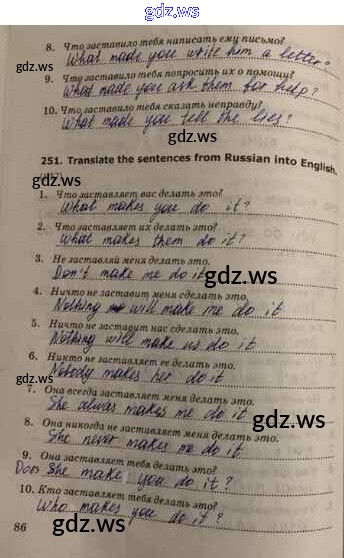 gdz.ws
8. Что заставило тебя написать ему письмо?
What made you write him a letter?
9. Что заставило тебя попросить их о помощи?
What made you ask them for help?
10. Что заставило тебя сказать неправду?
What made you tell the lies?
gdz.ws gdz.ws
251. Translate the sentences from Russian into English.
1. Что заставляет вас делать это?
What makes you do it?
2. Что заставляет их делать это?
What makes them do it?
gdz.ws
3. Не заставляй меня делать это.
Don't make me do it
gdz.ws
4. Ничто не заставит меня сделать это.
Nothing will make me do it
5. Ничто не заставит нас сделать это.
Nothing will make us do it
6. Никто не заставляет ее делать это.
Nobody makes her do it
gdz.ws gdz.ws
7. Она всегда заставляет меня делать это.
She alwas makes me do it
8. Она никогда не заставляет меня делать это.
She never makes me do it
9. Она заставляет тебя делать это?
Does she make you do it?
gdz.ws
10. Кто заставляет тебя делать это?
Who makes you do it?
86
gdz.ws gdz.ws